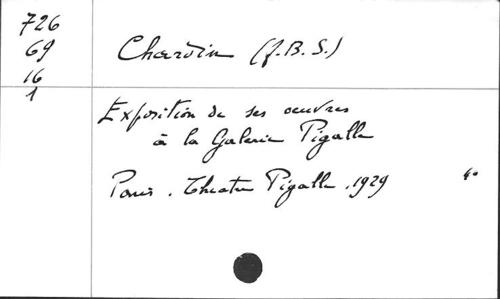 726
69
16
1
Chardin (J.B.S.)
Exposition de ses oeuvres
à la Galerie Pigalle
Paris. Theatre Pigalle, 1929 4°